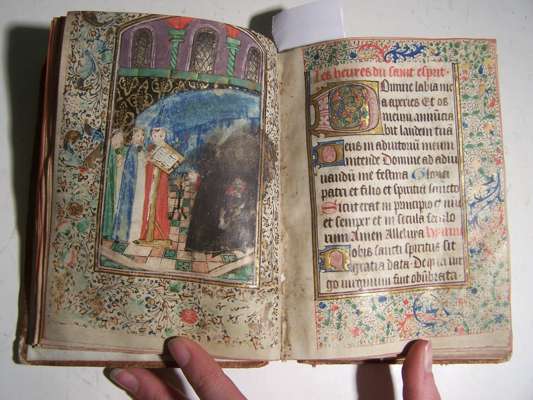 Les heures du saint esprit.
Domine labia me
a aperies Et os
meum annuncia
bit laudem tuã
Deus in adiutoriũ meum
intende Domine ad adiu
uandũ me festina Gloria
patri et filio et spiritui sancto
Sicut erat in principio et nũc
et semper et in secula seculo
rum Amen Alleluya
Nobis sancti spiritus sit
gratia data De qua uir
go virginum fuit obũbrata